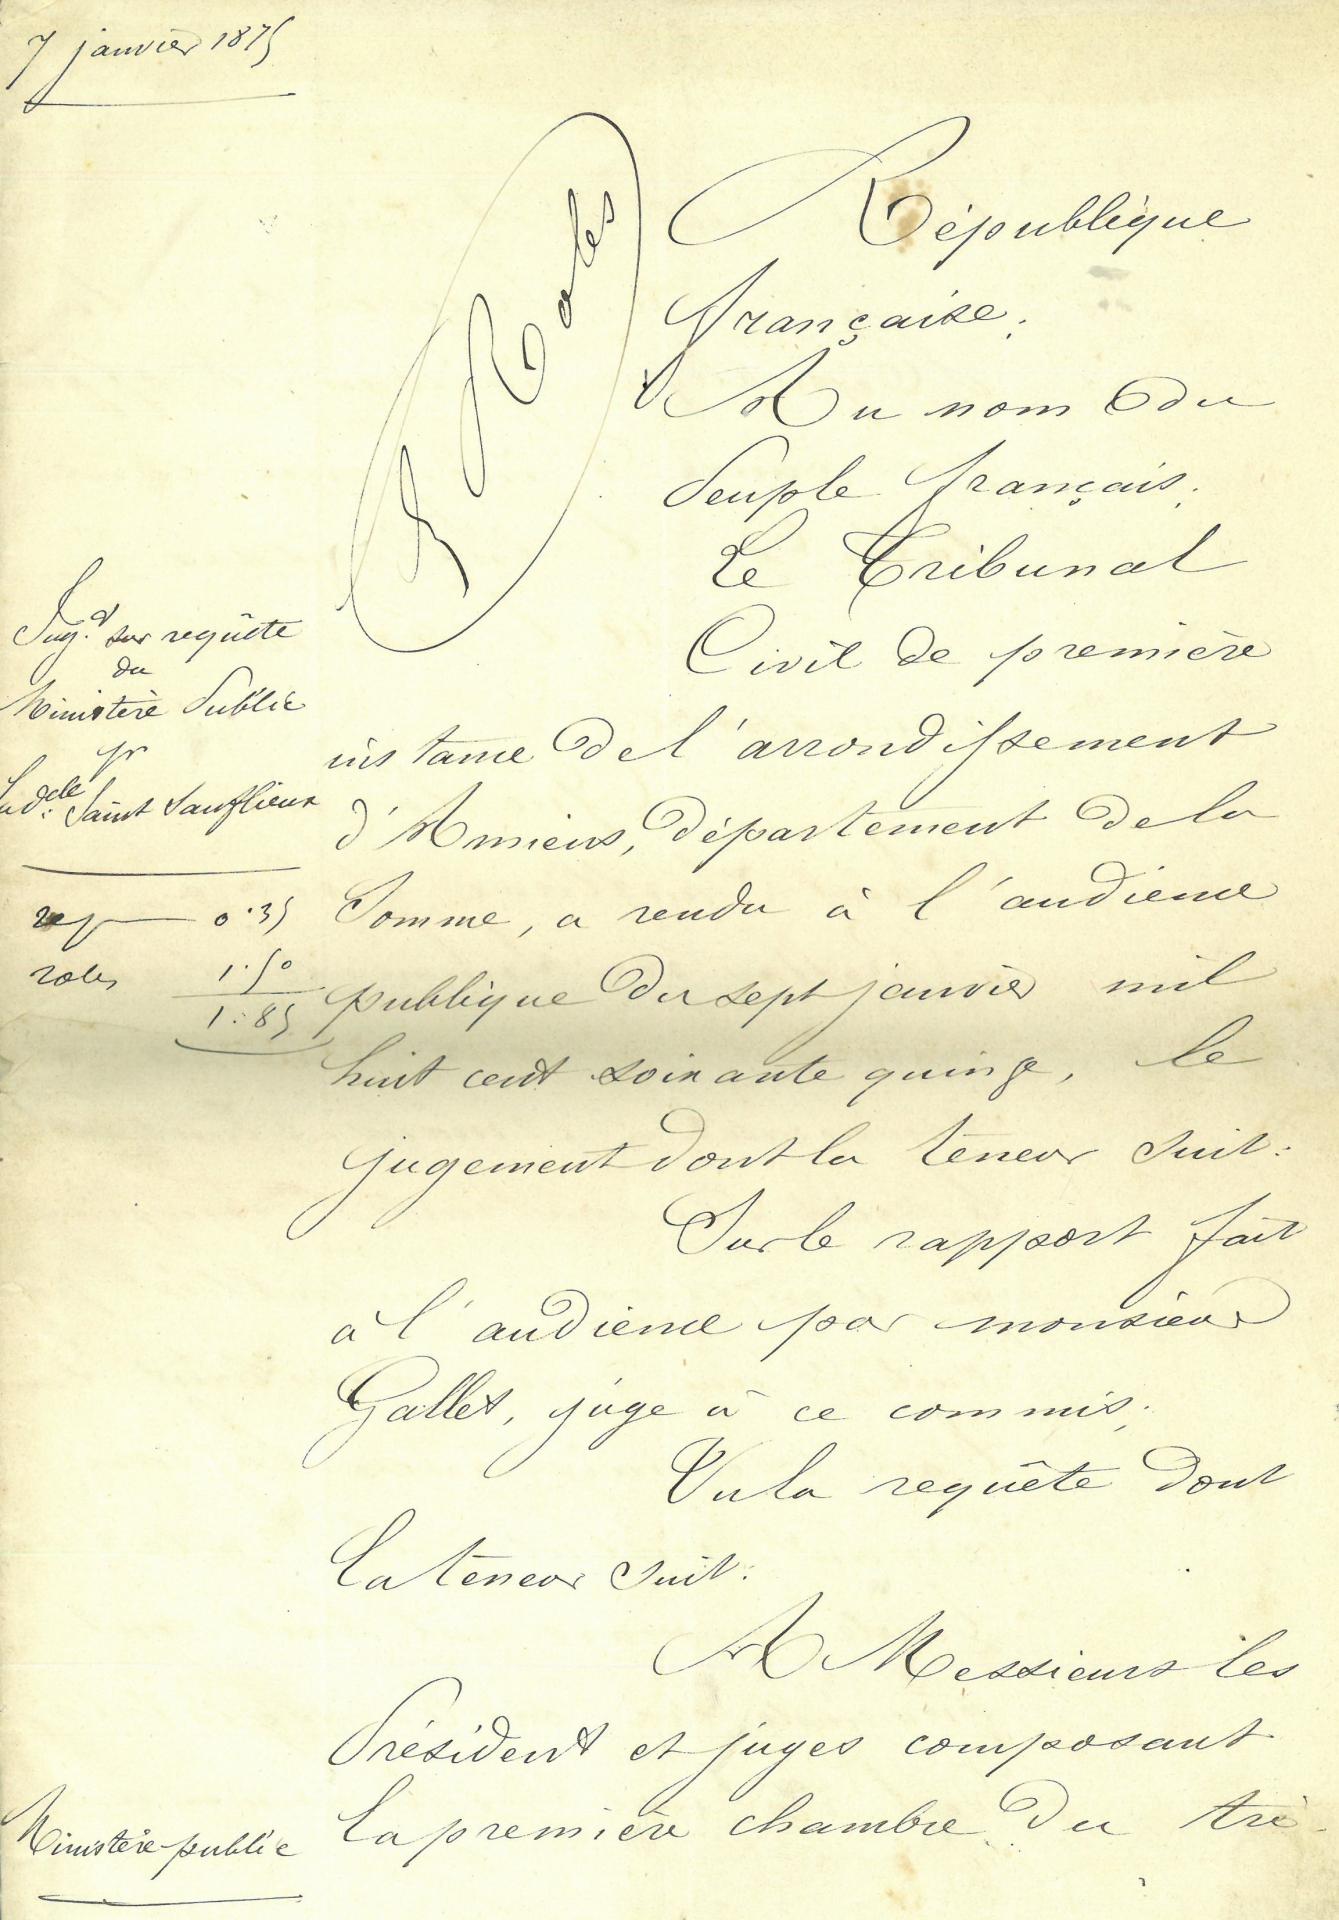 7 janvier 1875
Rôles
République
française.
Au nom du
Peuple français.
Le Tribunal
Civil de première
instance de l'arrondissement
d'Amiens, département de la
Somme, a rendu à l'audience
publique du sept janvier mil
huit cent soixante quinze, le
jugement dont la teneur suit:
Sur le rapport fait
à l'audience par monsieur
Gallet, juge à ce commis;
Vu la requête dont
la teneur suit:
A Messieurs les
Président et juges composant
la première chambre du tri-
Jug.t sur requête
du
Ministère Public
pr
la d.elle Saint Sauflieux
rep 0.35
roles 1.50
1.85
Ministère public